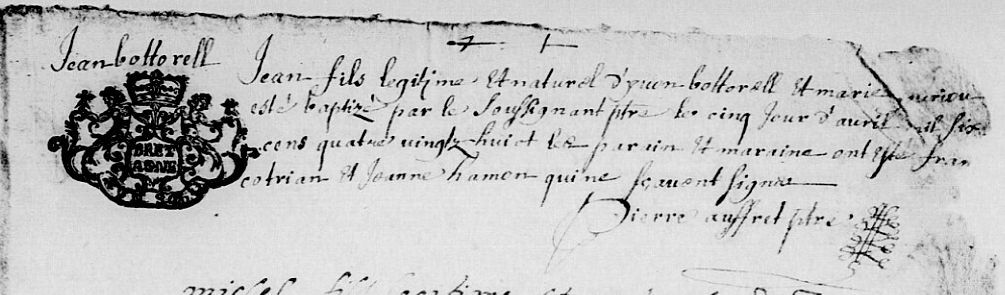 Jean bottorell
Jean fils legitime Et naturel d'yuon bottorell Et marie
esté baptizé par le Soussignant ptre le cinq Jour d'auril mil six
cens quatre vingtz huict les parain Et maraine ont Esté fran
cotrian Et Jeanne hamon qui ne sçauent signer
Pierre auffret ptre
BRET
AGNE
michel fils legitime Et